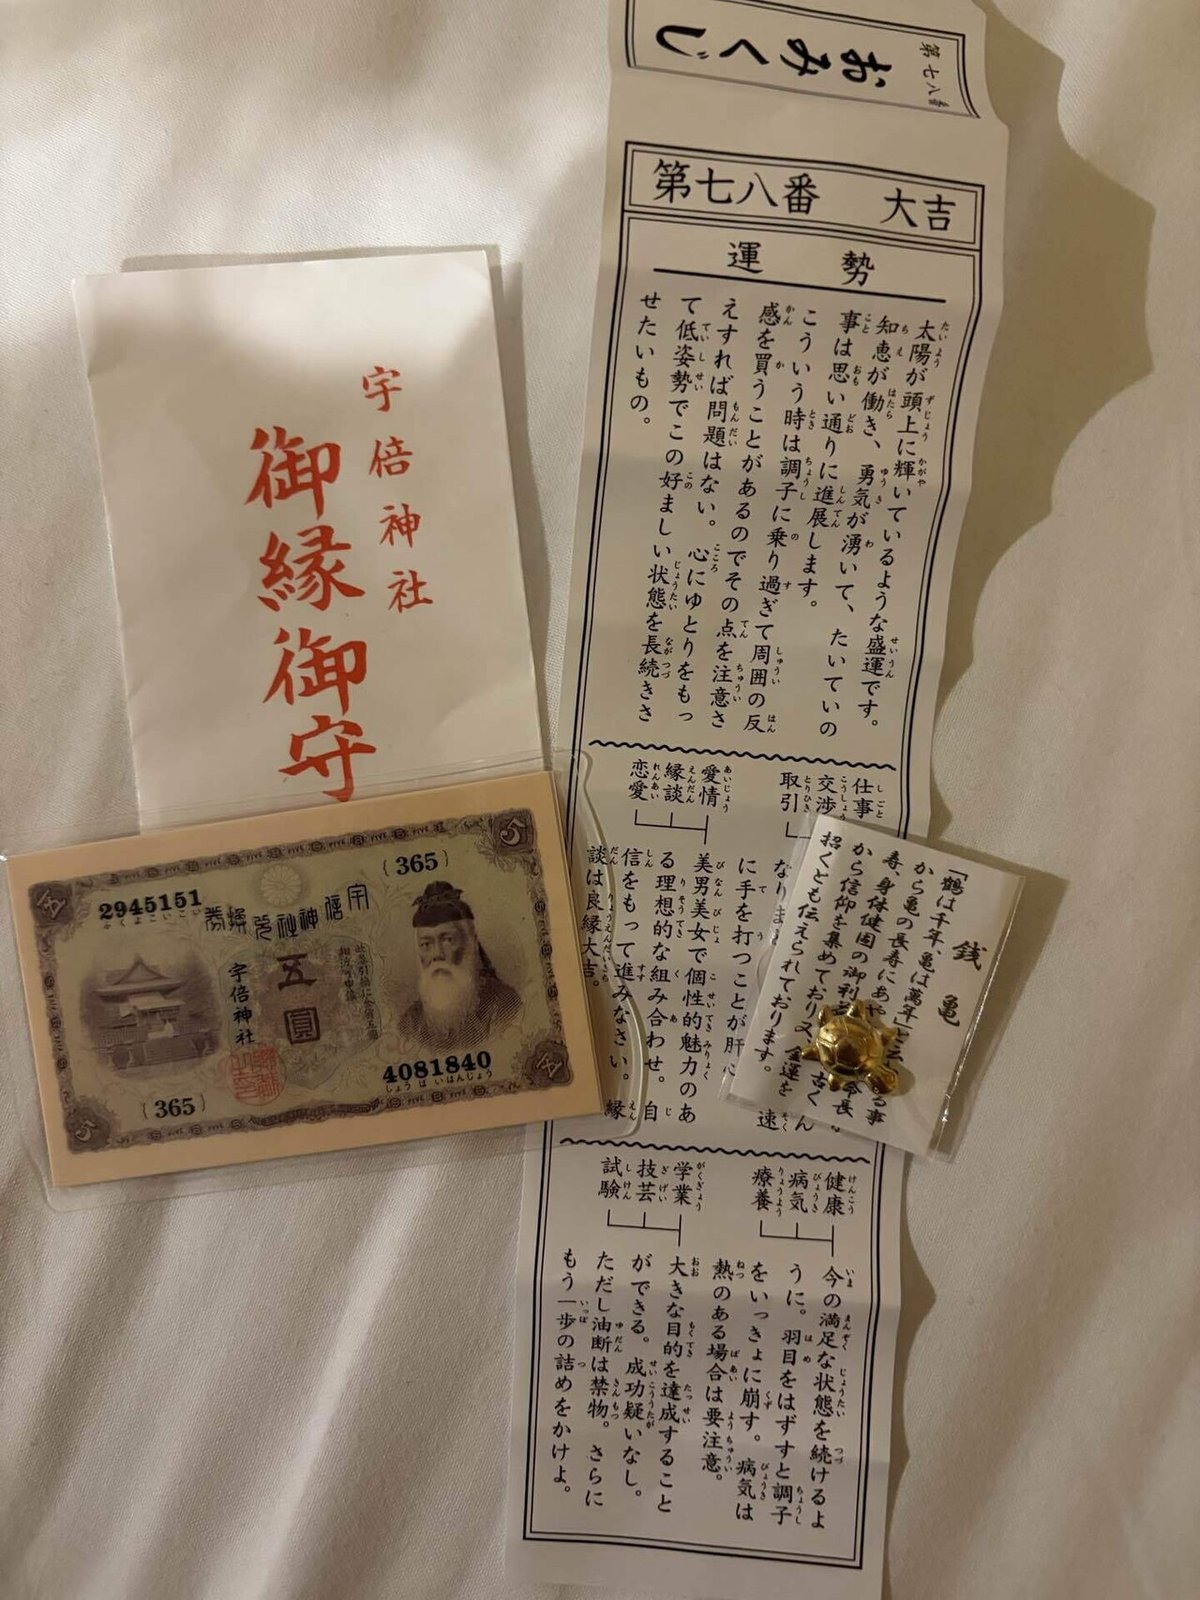 おみくじ
第七八番
第七八番 大吉
運勢
太陽が頭上に輝いているような盛運です。
知恵が働き、勇気が湧いて、たいていの
事は思い通りに進展します。
こういう時は調子に乗り過ぎて周囲の反
感を買うことがあるのでその点を注意さ
えすれば問題はない。心にゆとりをもっ
て低姿勢でこの好ましい状態を長続きさ
せたいもの。
仕事
交渉
取引
速
に手を打つことが肝心
なりま
愛情
縁談
恋愛
美男美女で個性的魅力のあ
る理想的な組み合わせ。自
信をもって進みなさい。縁
談は良縁大吉。
健康
病気
療養
今の満足な状態を続けるよ
うに。羽目をはずすと調子
をいっきょに崩す。病気は
熱のある場合は要注意。
学業
技芸
試験
大きな目的を達成すること
ができる。成功疑いなし。
ただし油断は禁物。さらに
もう一歩の詰めをかけよ。
宇倍神社
御縁御守
2945151
ふくよこいこい
(365)
宇倍神社
五圓
宇倍神社
4081840
しょうばいはんじょう
(365)
銭亀
「鶴は千年、亀は萬年」と云
る事
から亀の長寿にあや
寿、身体健固の御利
命長
から信仰を集めており又、金運を
招くとも伝えられております。
古く